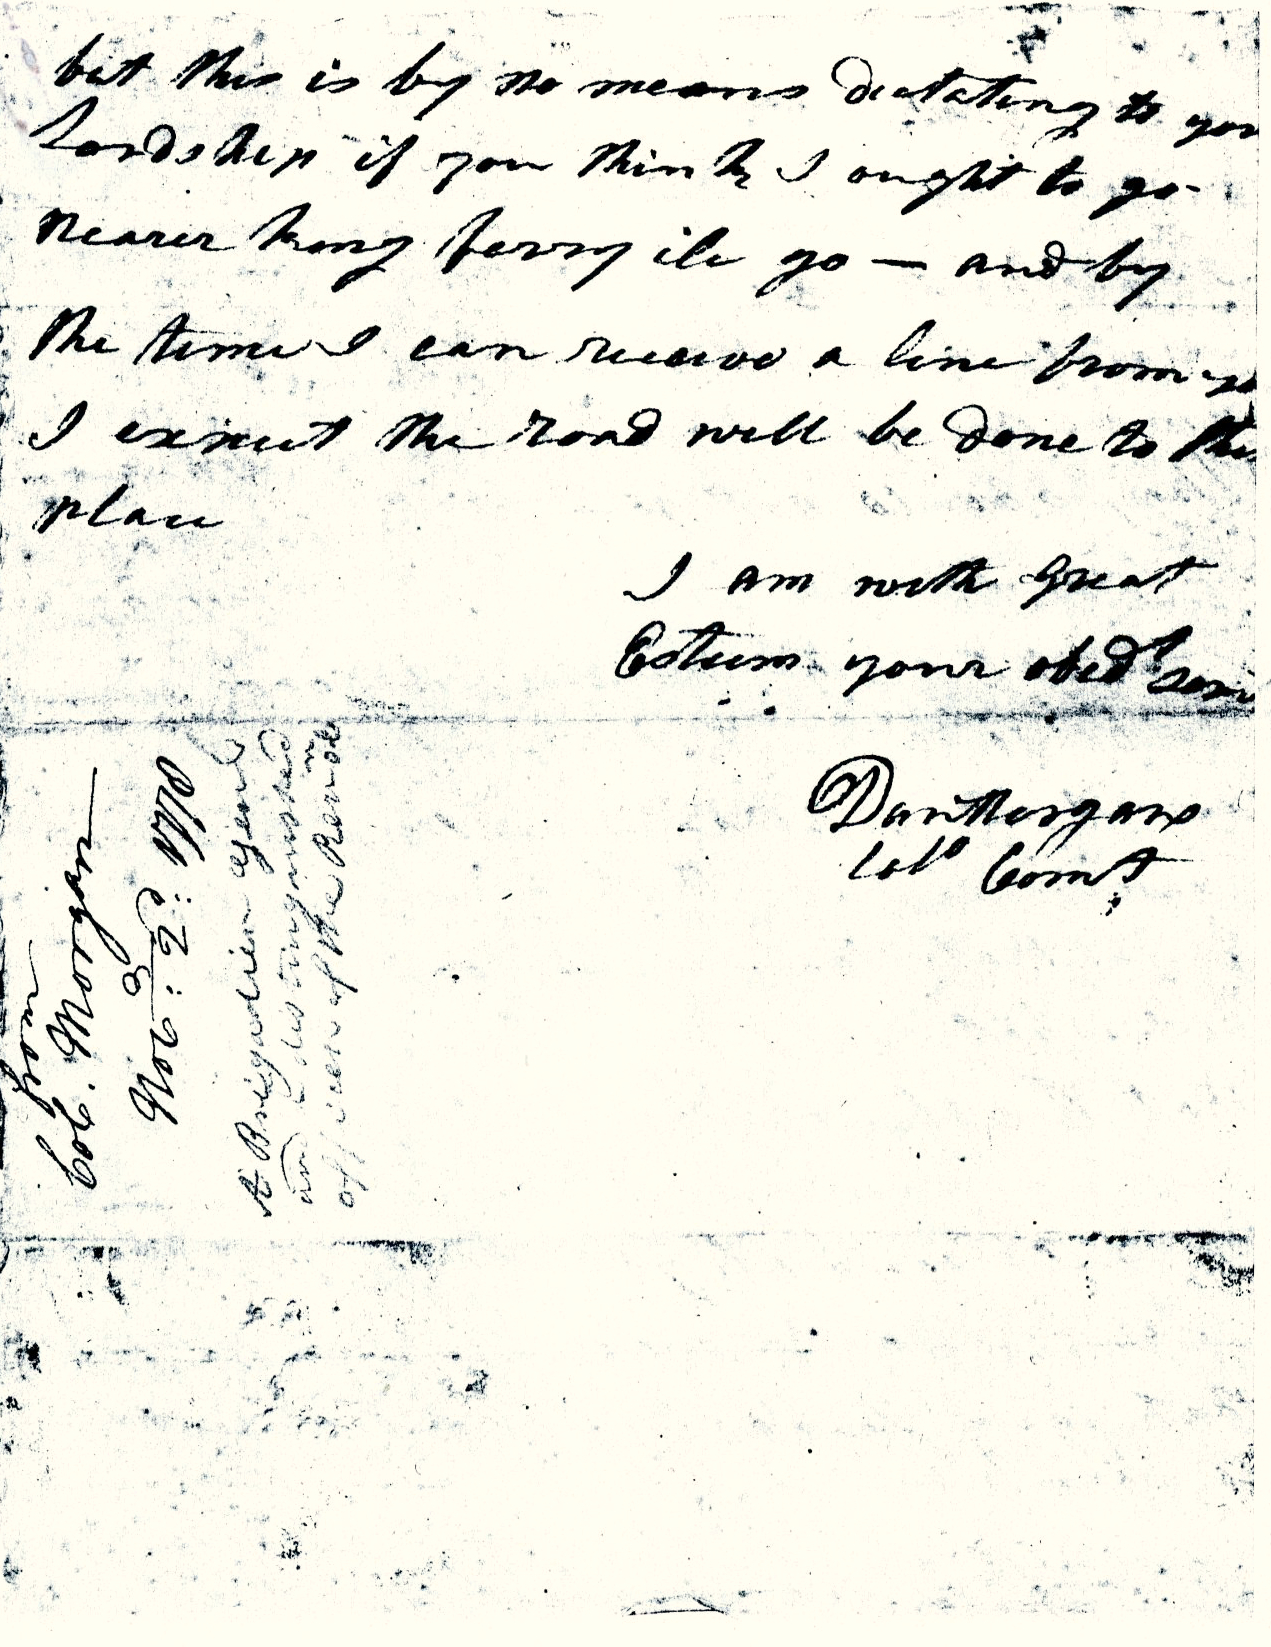 but this is by no means dictating to you
Lordship if you think I ought to go
nearer Kings ferry ile go — and by
the time I can receive a line from yo
I expect the road will be done to this
place
I am with Great
Esteem your obed.t serv
Dan Morgan
Col.o Com.t
from
Col. Morgan
Nov: 8
A Brigadier Genl
and a distinguished
officer of the Revo